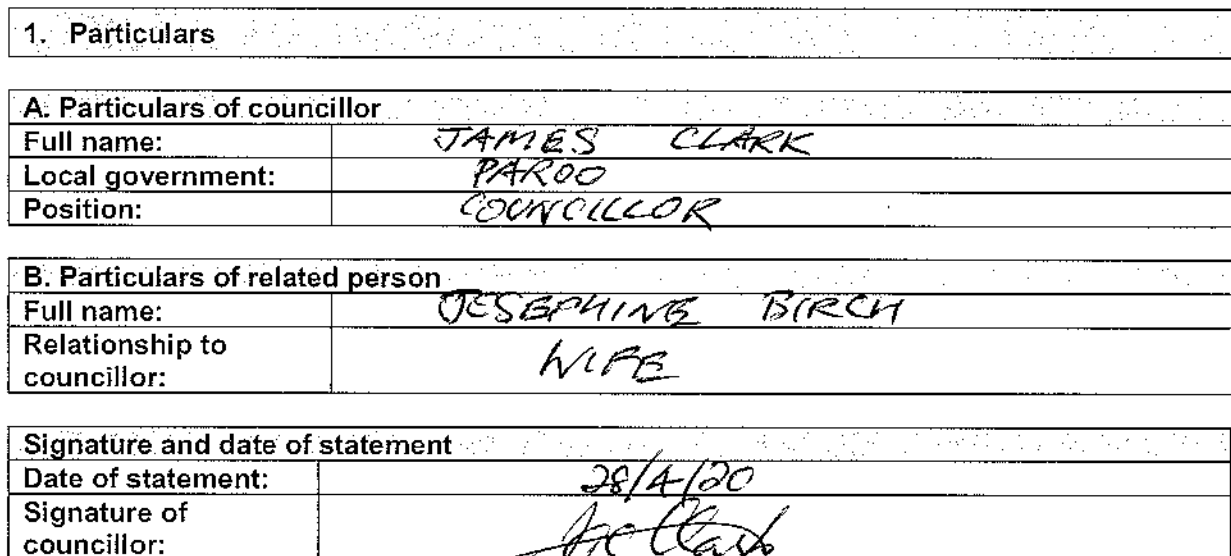 1. Particulars
A. Particulars of councillor
Full name: JAMES CLARK
Local government: PAROO
Position: COUNCILLOR
B. Particulars of related person
Full name: JESEPHINE BIRCH
Relationship to
councillor: WIFE
Signature and date of statement
Date of statement: 28/4/20
Signature of
councillor: